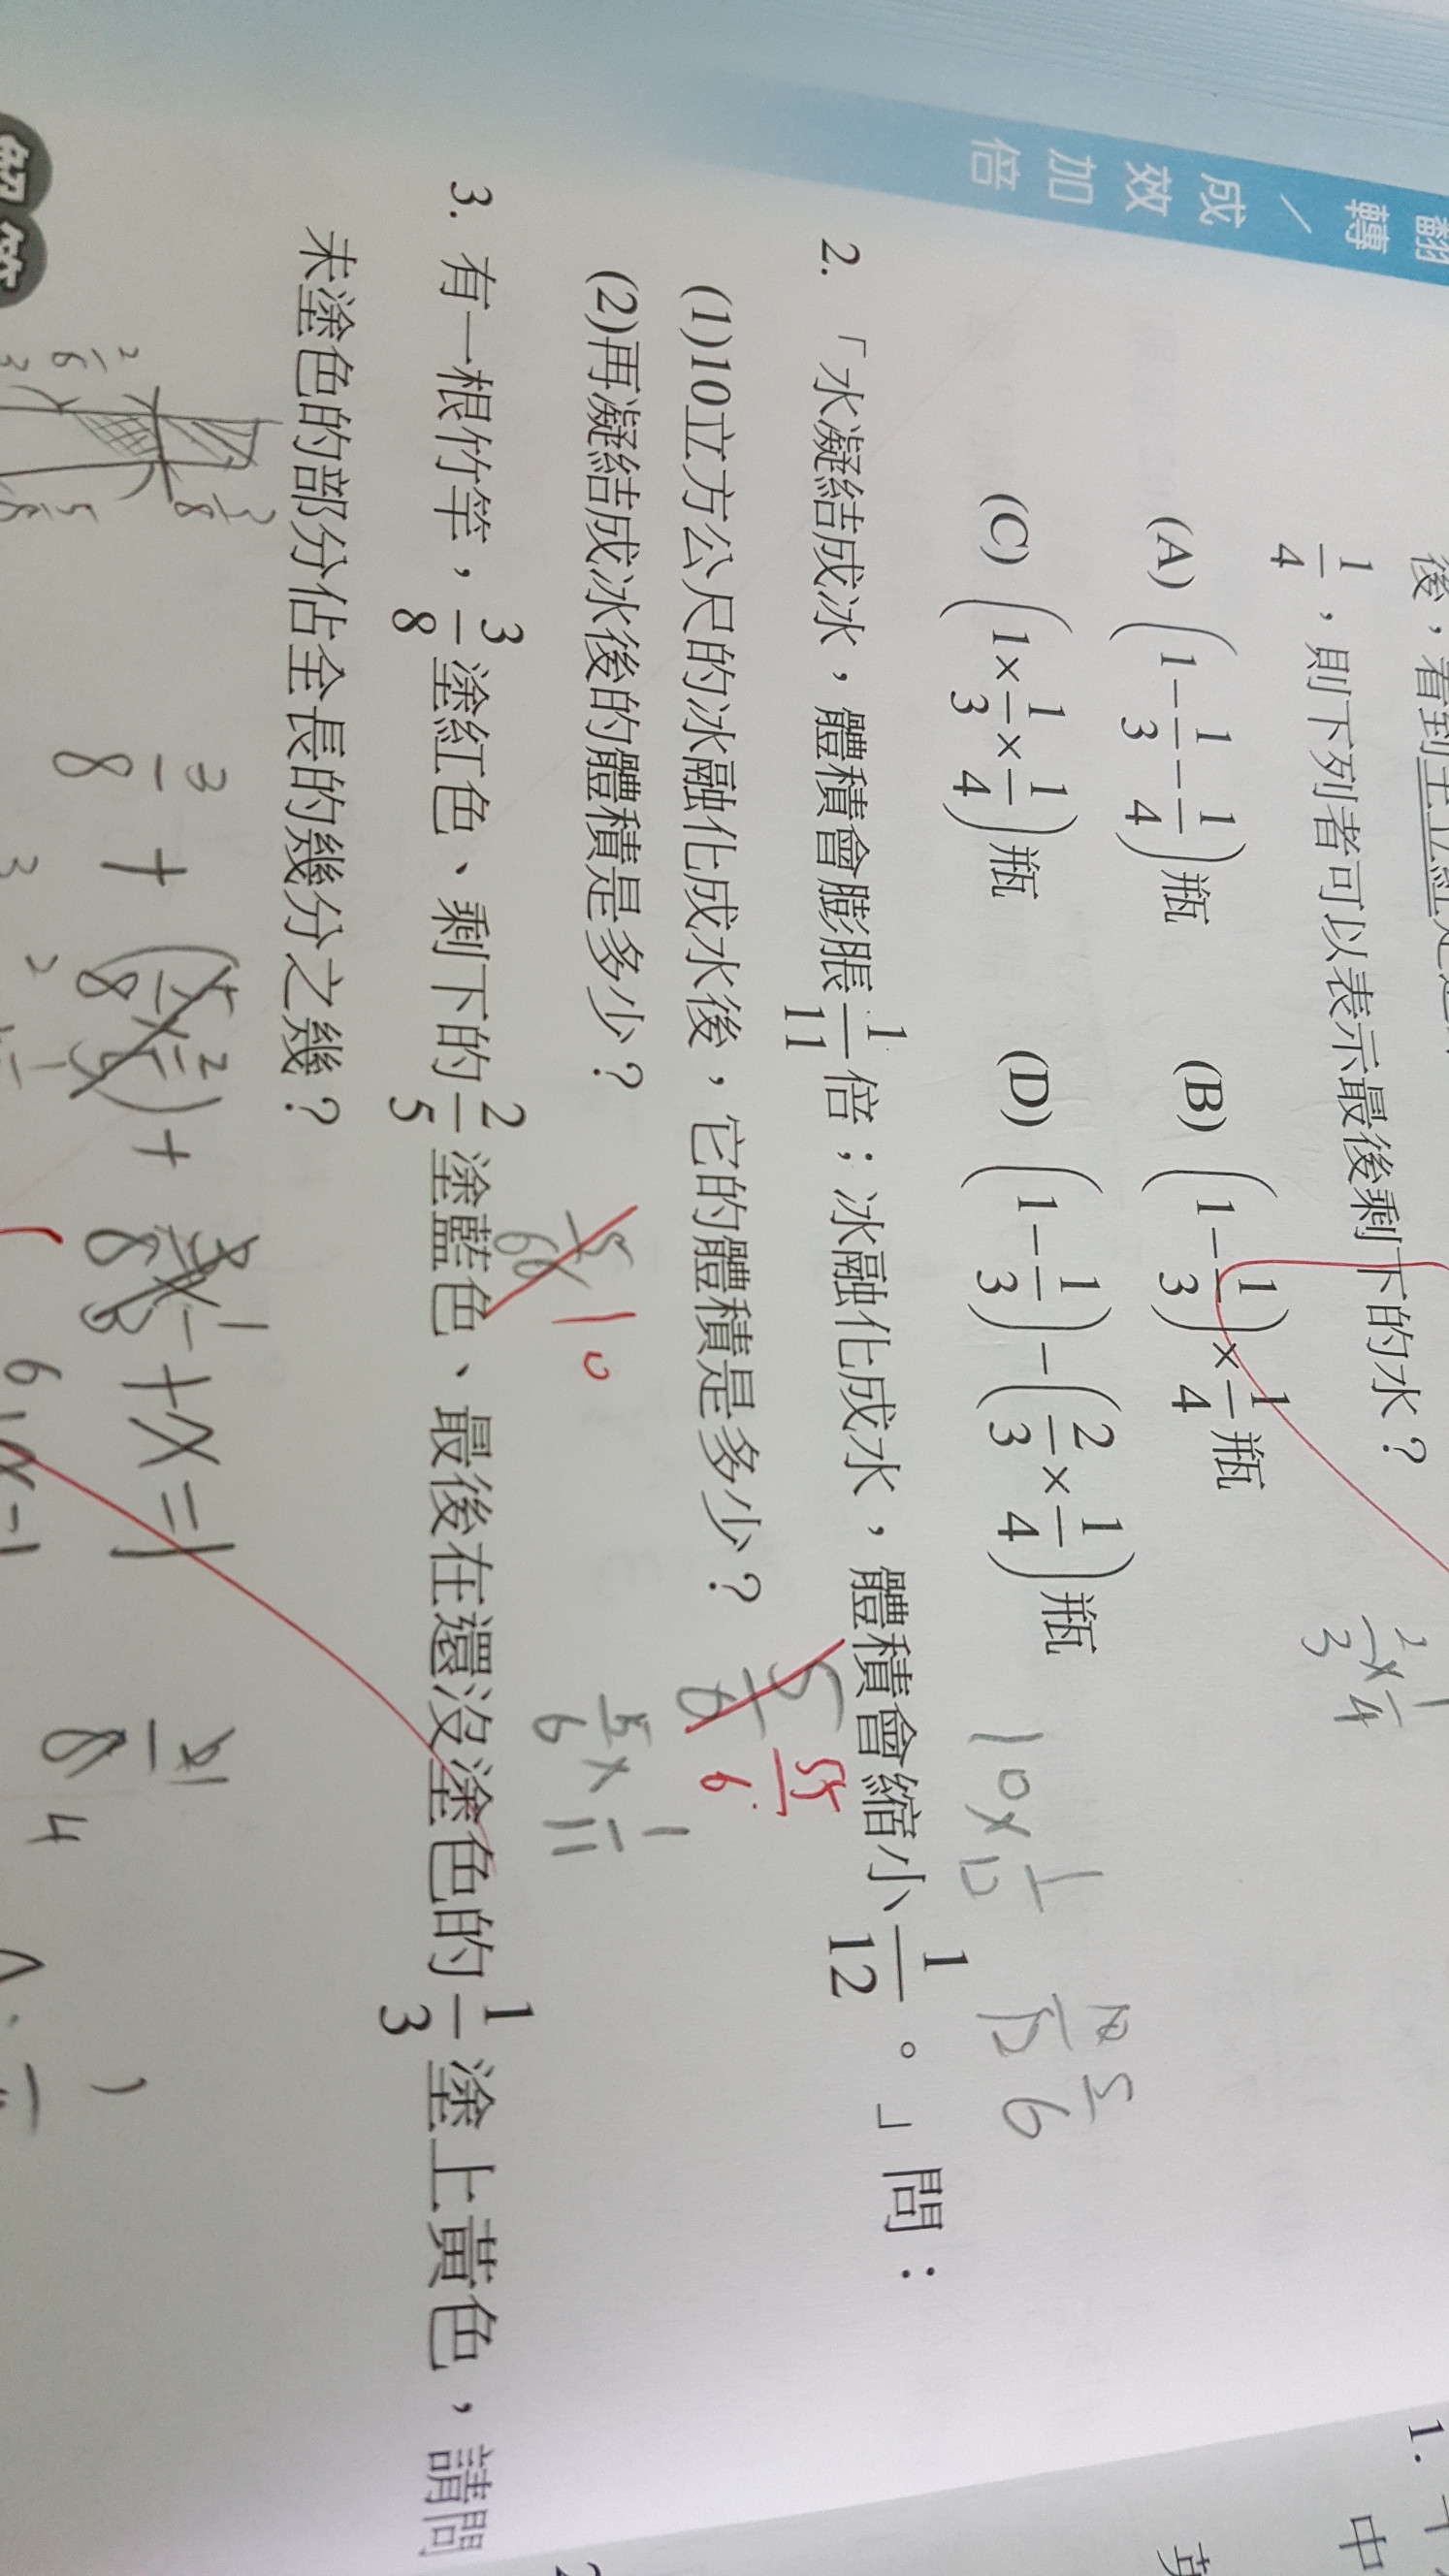 翻轉／成效加倍
後，看到
1/4，則下列者可以表示最後剩下的水？
(A) (1－1/3－1/4)瓶 (B) (1－1/3)×1/4瓶
(C) (1×1/3×1/4)瓶 (D) (1－1/3)－(2/3×1/4)瓶
2/3×1/4
10×1/12
10/12 5/6
2. 「水凝結成冰，體積會膨脹1/11倍；冰融化成水，體積會縮小1/12。」問：
(1)10立方公尺的冰融化成水後，它的體積是多少？ 5/6 55/6
(2)再凝結成冰後的體積是多少？ 5/66 10
5/6×1/11
3. 有一根竹竿，3/8塗紅色、剩下的2/5塗藍色、最後在還沒塗色的1/3塗上黃色，請問
未塗色的部分佔全長的幾分之幾？
3/8
5/8
2/8
3/8 + (5/8×2/5) + 1/8 + x = 1
解答
1.
中